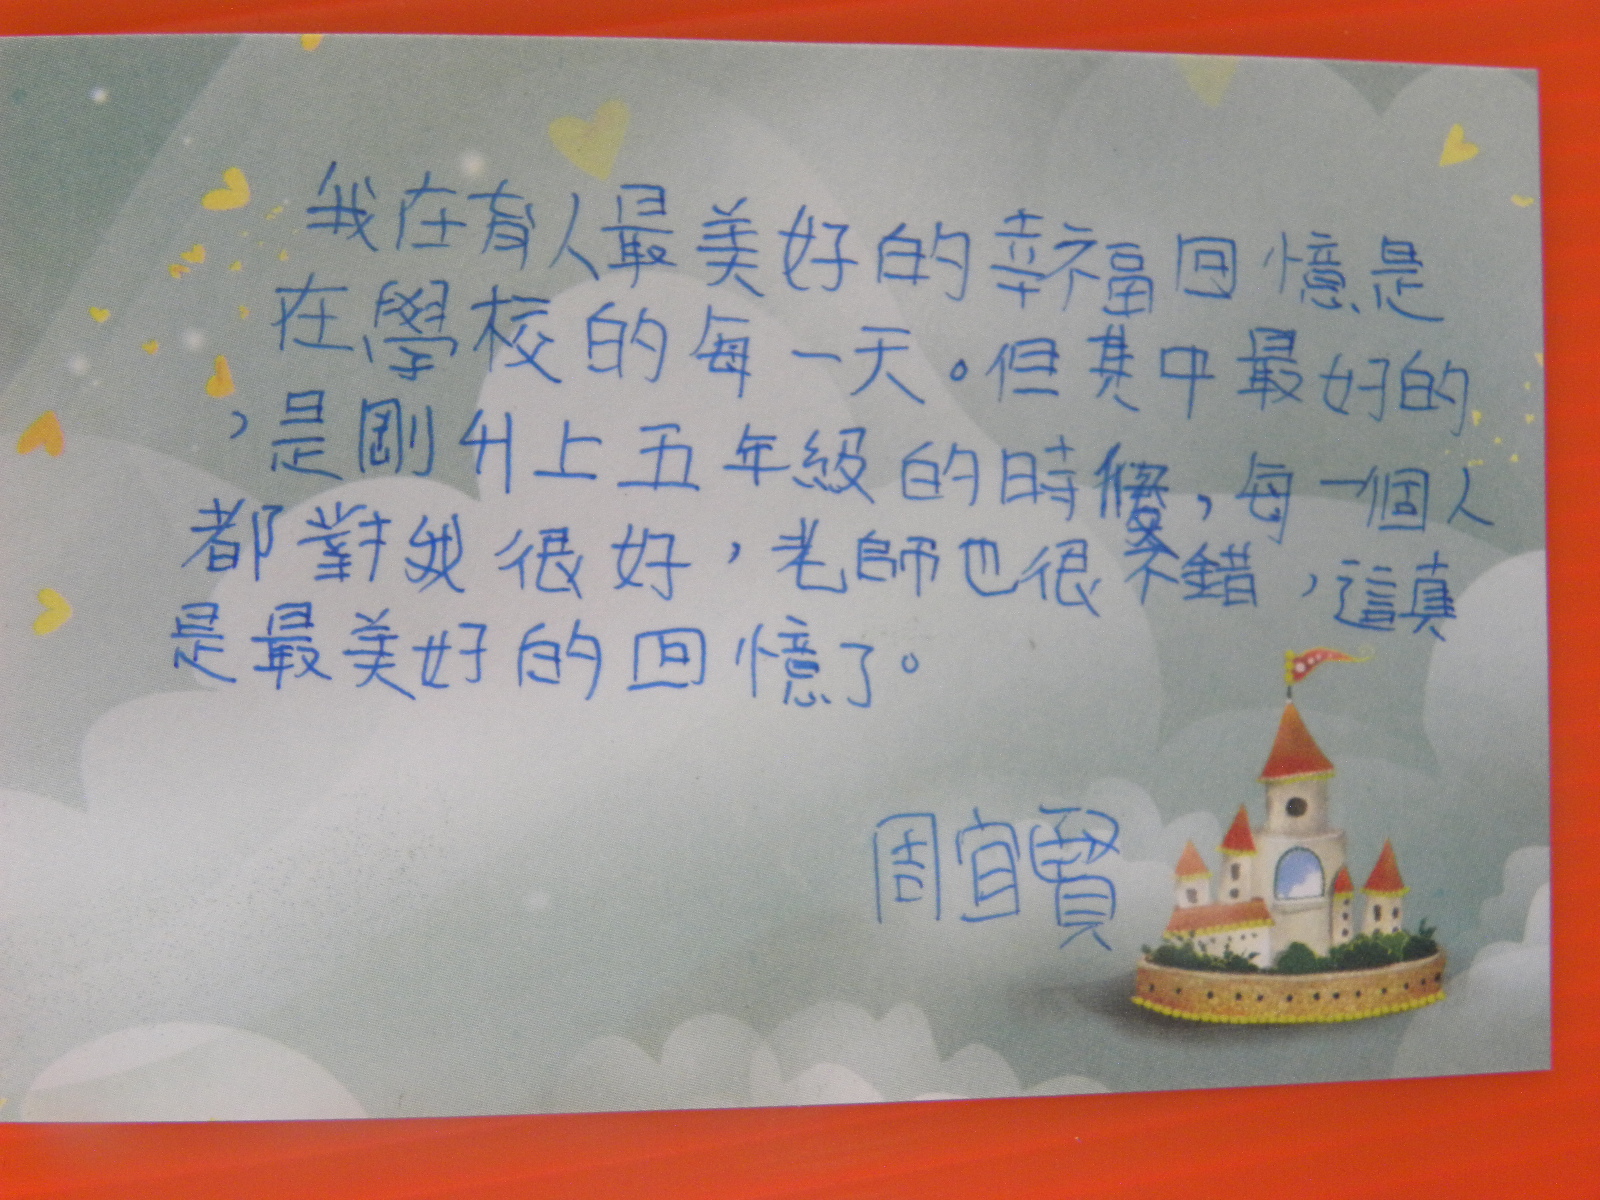 我在有人最美好的幸福回憶是
在學校的每一天。但其中最好的
，是剛升上五年級的時候，每一個人
都對我很好，老師也很不錯，這真
是最美好的回憶了。
周宜賢